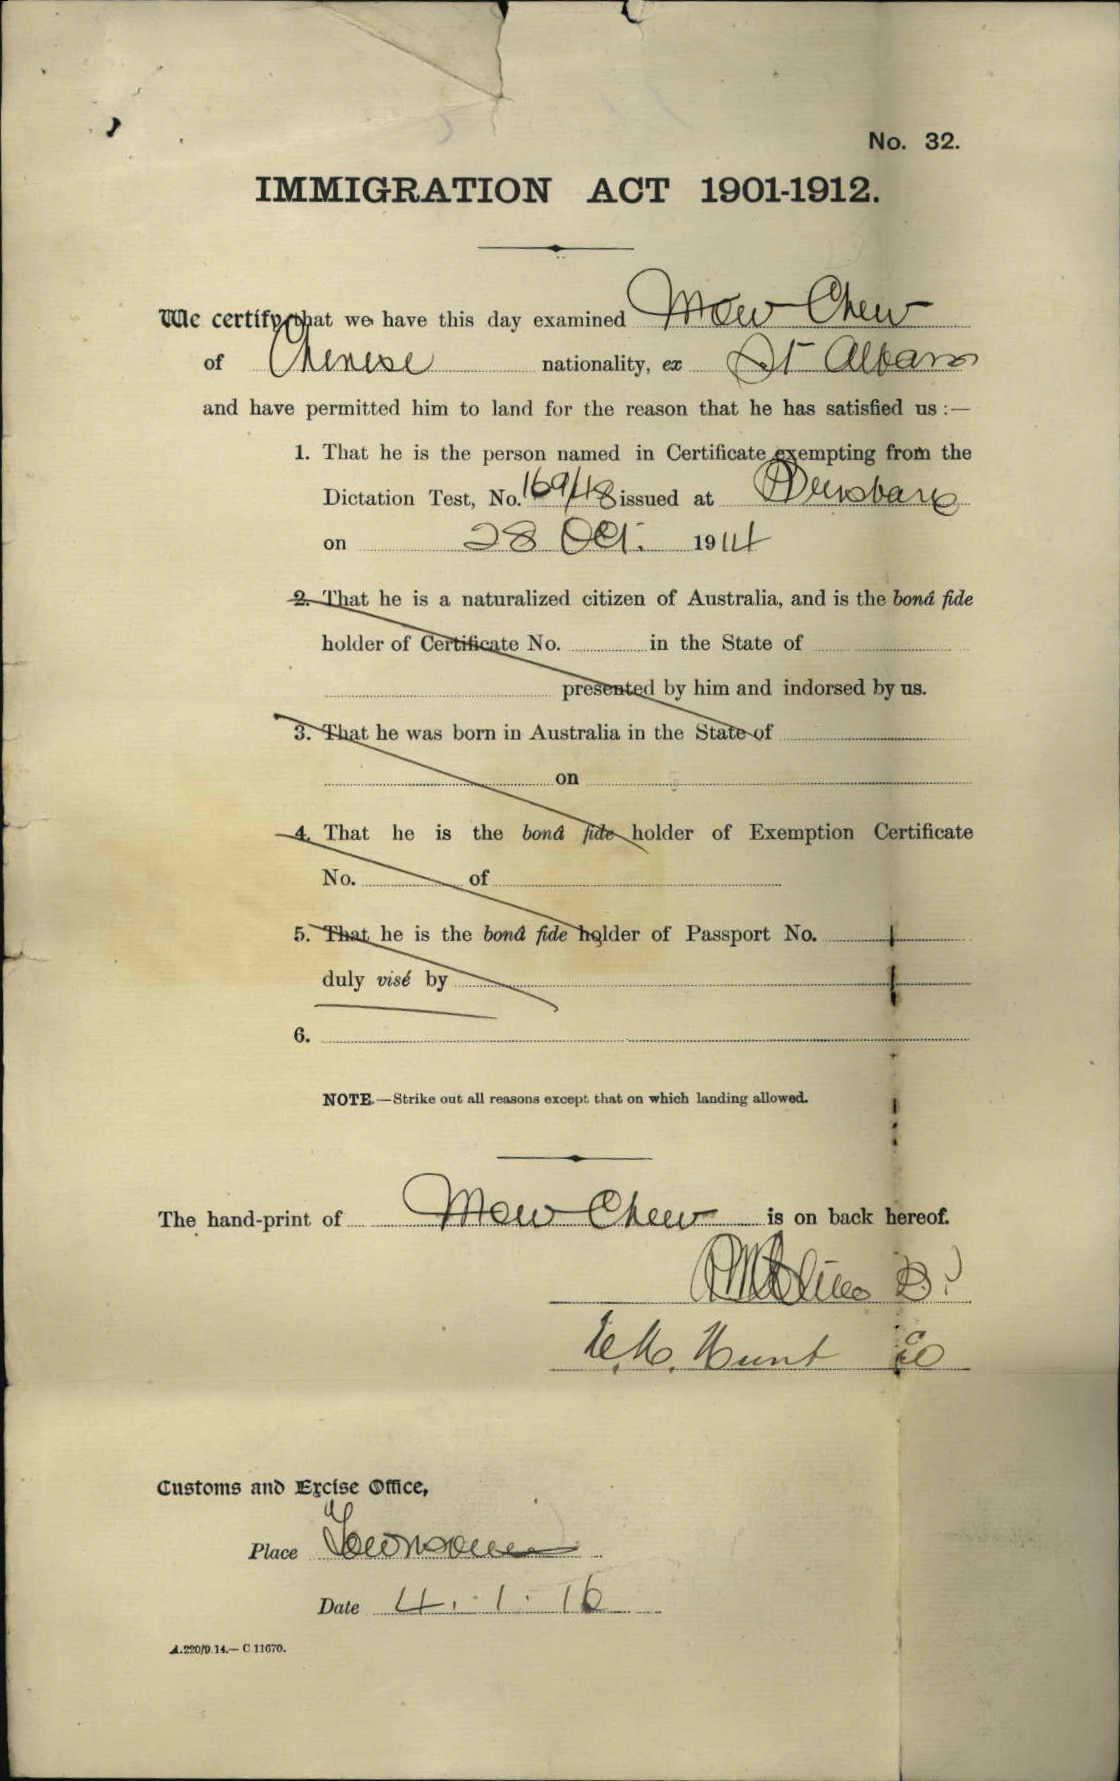 No. 32.
IMMIGRATION ACT 1901-1912.
We certify that we have this day examined Mow Chew
of Chinese nationality, ex St Albans
and have permitted him to land for the reason that he has satisfied us :—
1. That he is the person named in Certificate exempting from the
Dictation Test, No. 169/48 issued at Brisbane
on 28 Oct. 1914
2. That he is a naturalized citizen of Australia, and is the bonâ fide
holder of Certificate No. in the State of
presented by him and indorsed by us.
3. That he was born in Australia in the State of
on
4. That he is the bonâ fide holder of Exemption Certificate
No. of
5. That he is the bonâ fide holder of Passport No.
duly visé by
6.
NOTE.—Strike out all reasons except that on which landing allowed.
The hand-print of Mow Chew is on back hereof.
Hunt
Customs and Excise Office,
Place Townsville
Date 4.1.16
A.220/9.14.— C 11670.